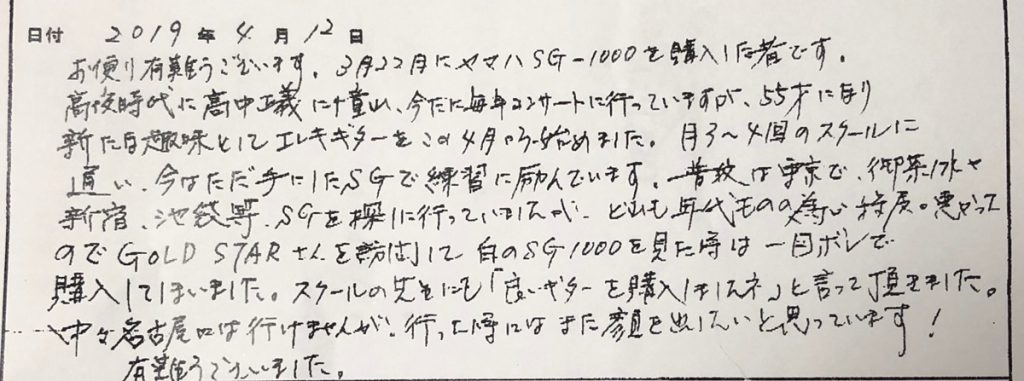 日付 2019 年 4 月 12 日
お便り有難うございます。3月22日にヤマハSG-1000を購入した者です。
高校時代に高中正義に憧れ、今だに毎年コンサートに行っていますが、55才になり
新たな趣味としてエレキギターをこの4月から始めました。月3〜4回のスクールに
通い、今はただ手にしたSGで練習に励んでいます。普段は東京で、御茶ノ水や
新宿、池袋等、SGを探しに行っていましたが、どれも年代ものの為か程度。悪かった
のでGOLD STARさんを訪問して、白のSG1000を見た時は一目ボレで
購入してしまいました。スクールの先生にも「良いギターを購入しましたネ」と言って頂きました。
中々名古屋には行けませんが、行った時にはまた顔を出したいと思っています!
有難うございました。